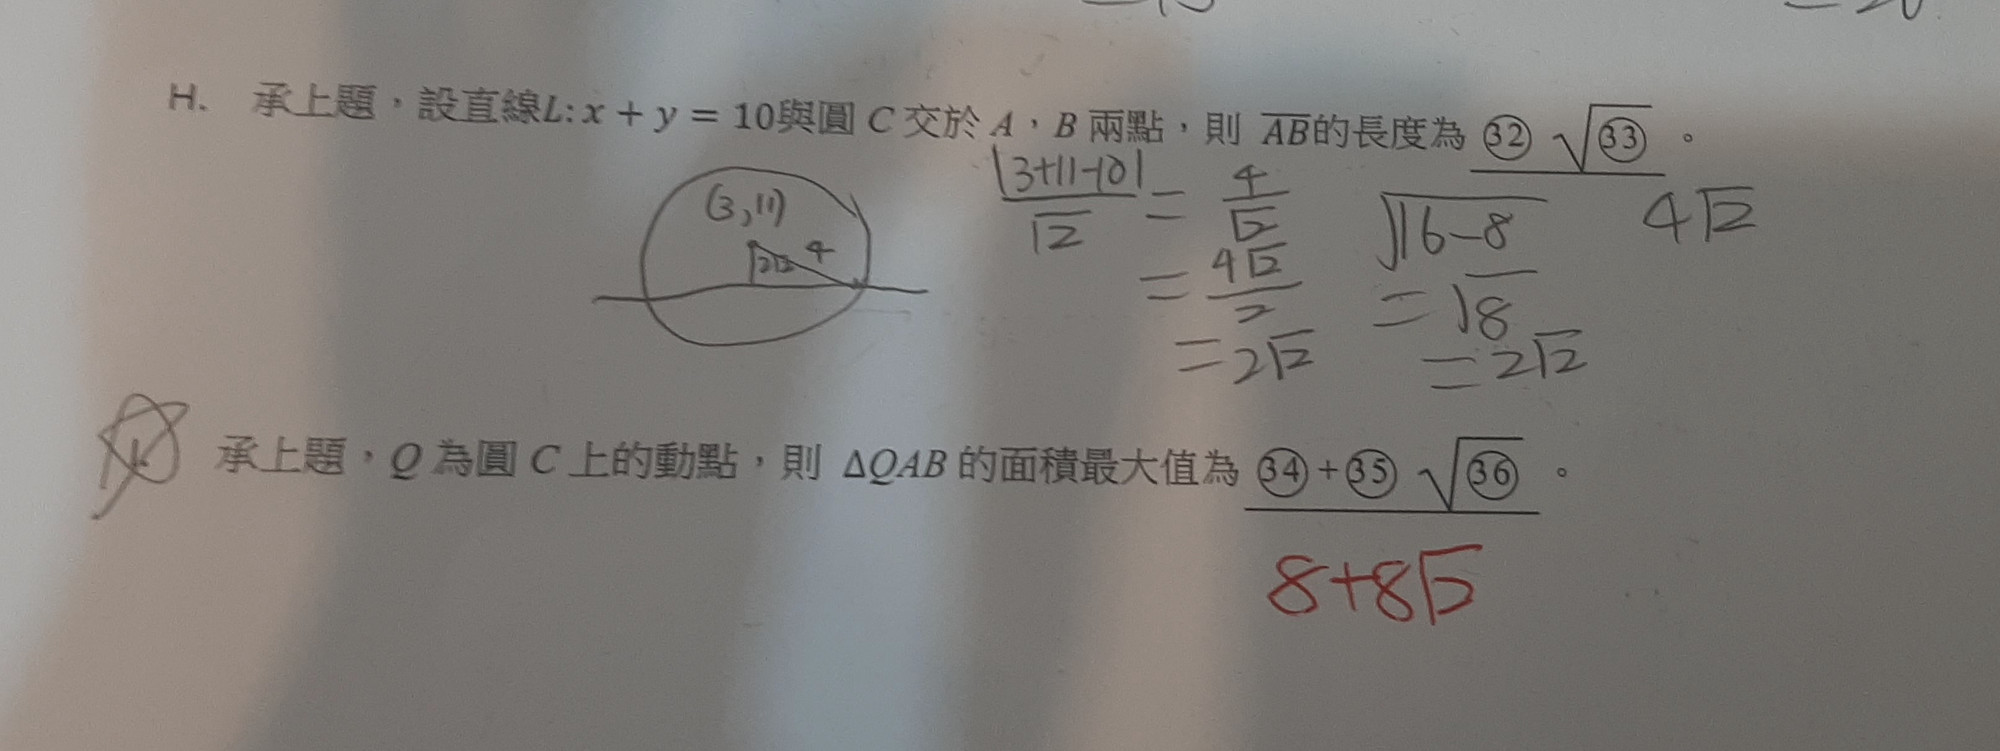 H. 承上題，設直線L: x + y = 10與圓 C 交於 A，B 兩點，則 AB的長度為 ㉜ √㉝ 。
(3,11)
2√2 4
|3+11-10| / √2 = 4/√2
= 4√2/2
= 2√2
√16-8
= √8
= 2√2
4√2
承上題，Q 為圓 C 上的動點，則 ΔQAB 的面積最大值為 ㉞+㉟ √㊱ 。
8+8√2